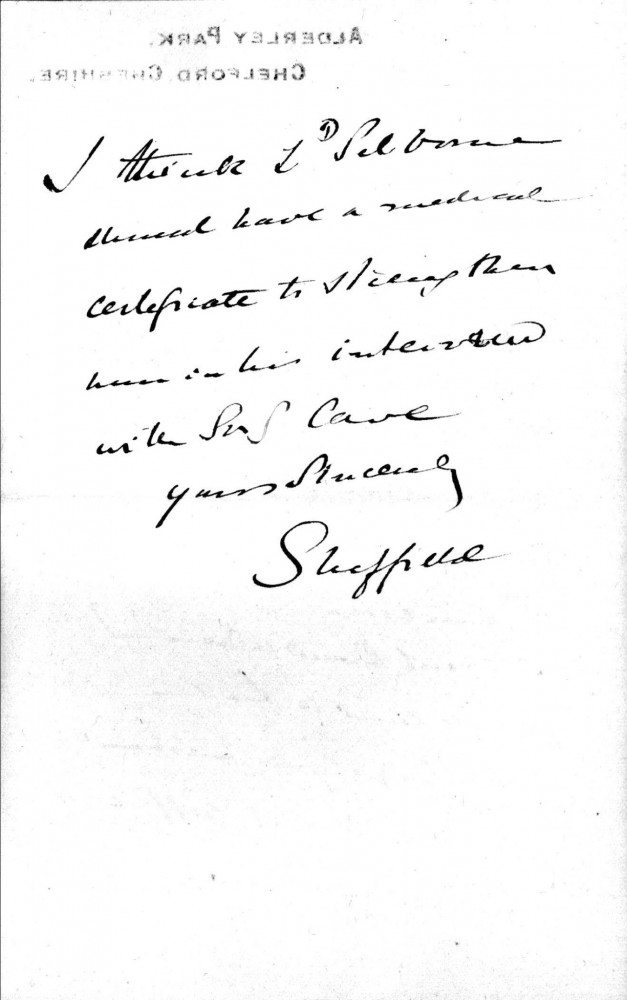 ALDERLEY PARK.
CHELFORD, CHESHIRE.
I think Lᴰ Selborne
should have a medical
certificate to strengthen
him in his interview
with Sir G Cave
yours sincerely
Sheffield